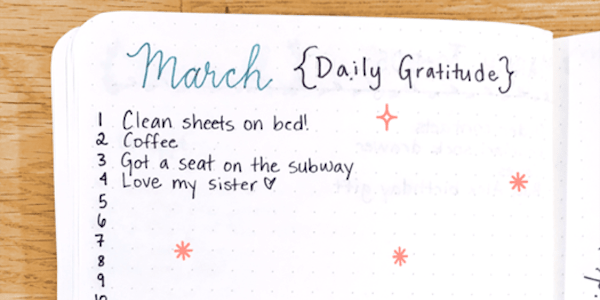 March {Daily Gratitude}
1 Clean sheets on bed!
2 Coffee
3 Got a seat on the subway
4 Love my sister ♡
5
6
7
8
9
10